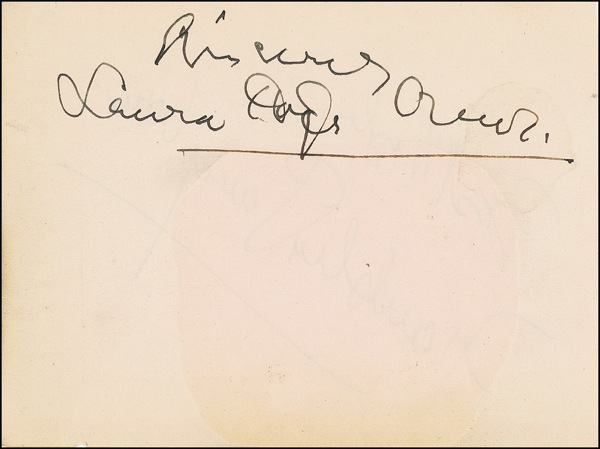 Sincerely
Laura Hope Crews.